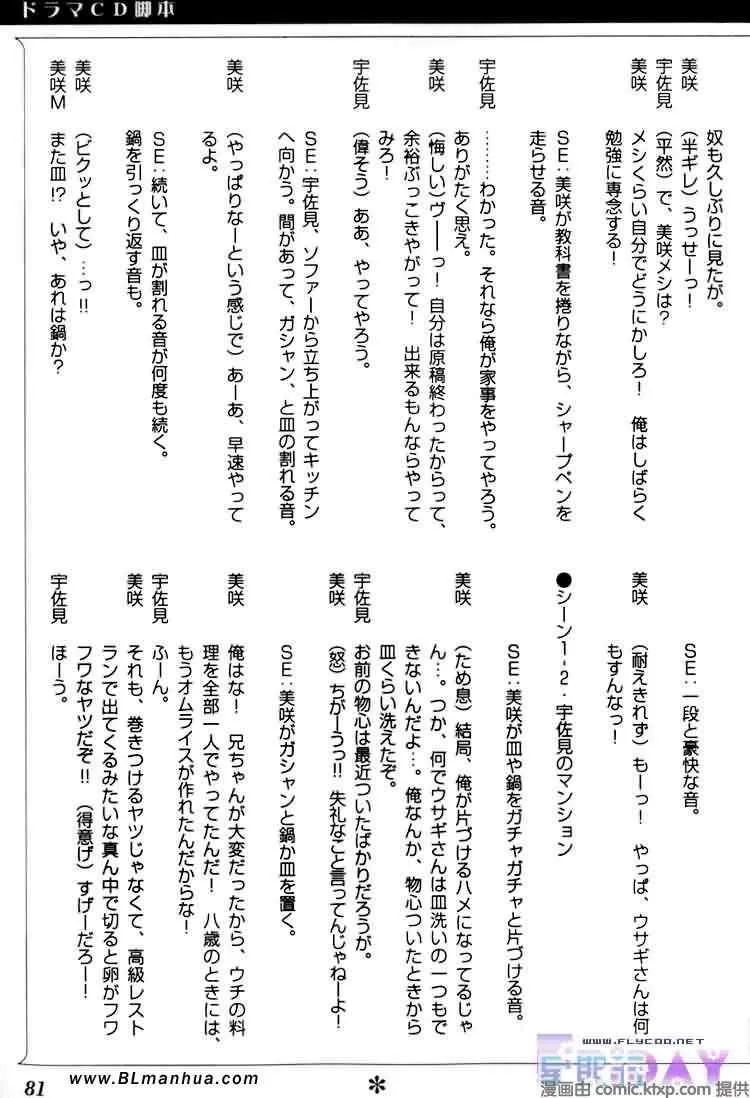 ドラマCD脚本
奴も久しぶりに見たが。
美咲　（半ギレ）うっせーっ！
宇佐見　（平然）で、美咲メシは？
美咲　メシくらい自分でどうにかしろ！　俺はしばらく
勉強に専念する！
SE：美咲が教科書を捲りながら、シャープペンを
走らせる音。
宇佐見　………わかった。それなら俺が家事をやってやろう。
ありがたく思え。
美咲　（悔しい）ヴーーっ！　自分は原稿終わったからって、
余裕ぶっこきやがって！　出来るもんならやって
みろ！
宇佐見　（偉そう）ああ、やってやろう。
SE：宇佐見、ソファーから立ち上がってキッチン
へ向かう。間があって、ガシャン、と皿の割れる音。
美咲　（やっぱりなーという感じで）あーあ、早速やって
るよ。
SE：続いて、皿が割れる音が何度も続く。
鍋を引っくり返す音も。
美咲　（ビクッとして）…っ!!
美咲M　また皿!?　いや、あれは鍋か？
SE：一段と豪快な音。
美咲　（耐えきれず）もーっ！　やっぱ、ウサギさんは何
もすんなっ！
●シーン1-2・宇佐見のマンション
SE：美咲が皿や鍋をガチャガチャと片づける音。
美咲　（ため息）結局、俺が片づけるハメになってるじゃ
ん…。つか、何でウサギさんは皿洗いの一つもで
きないんだよ…。俺なんか、物心ついたときから
皿くらい洗えたぞ。
宇佐見　お前の物心は最近ついたばかりだろうが。
美咲　（怒）ちがーうっ!!　失礼なこと言ってんじゃねーよ！
SE：美咲がガシャンと鍋か皿を置く。
美咲　俺はな！　兄ちゃんが大変だったから、ウチの料
理を全部一人でやってたんだ！　八歳のときには、
もうオムライスが作れたんだからな！
宇佐見　ふーん。
美咲　それも、巻きつけるヤツじゃなくて、高級レスト
ランで出てくるみたいな真ん中で切ると卵がフワ
フワなヤツだぞ!!　（得意げ）すげーだろー！
宇佐見　ほーう。
WWW.FLYCAN.NET
DAY
漫画由 comic.ktxp.com 提供
81
www.BLmanhua.com
＊